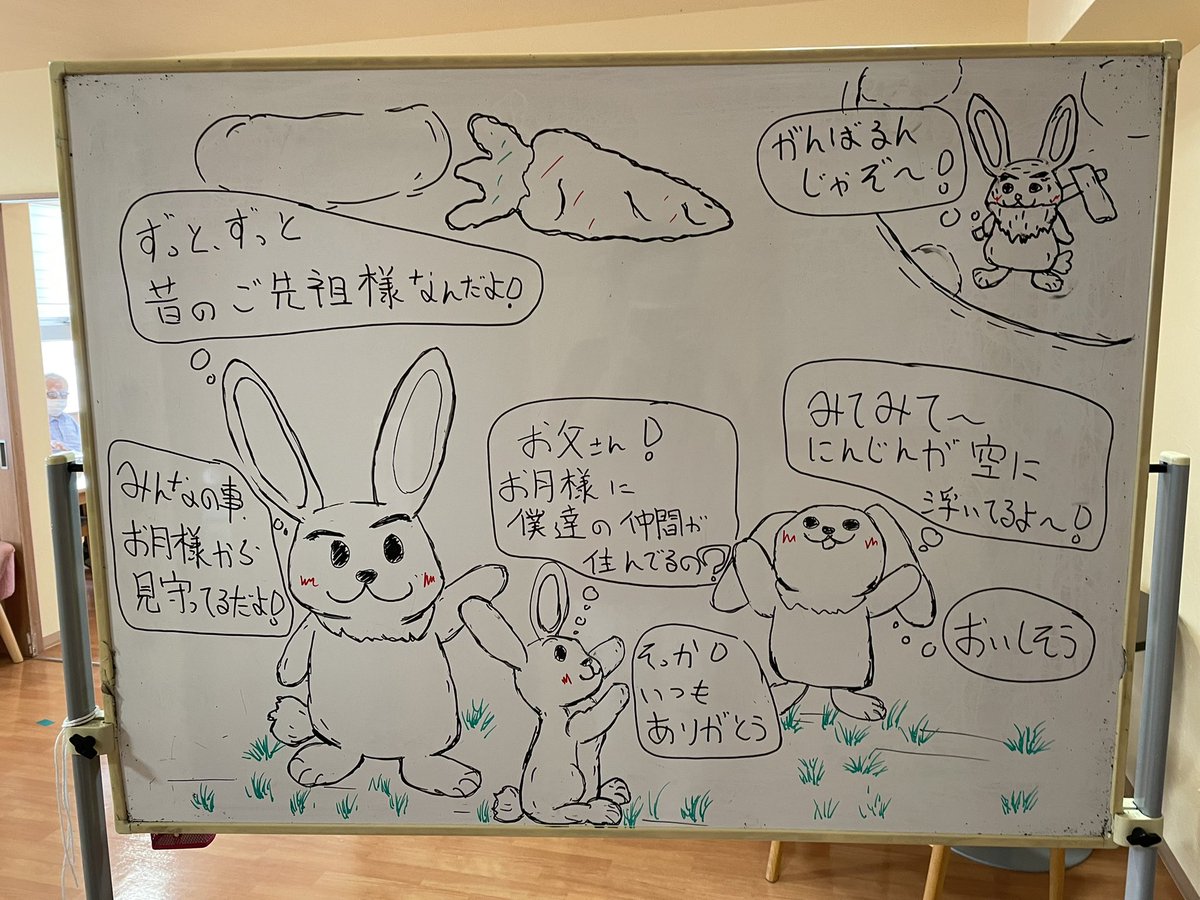 お父さん!
お月様に
僕達の仲間が
住んでるの?
ずっと、ずっと
昔のご先祖様なんだよ!
みんなの事
お月様から
見守ってるだよ!
そっか!
いつも
ありがとう
がんばるん
じゃぞ〜!
みてみて〜
にんじんが空に
浮いてるよ〜!
おいしそう